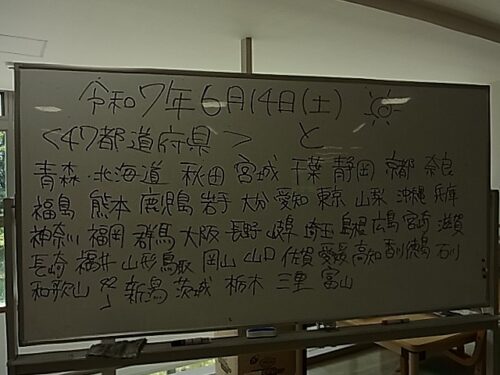 令和7年6月14日(土)
<47都道府県> と
青森 北海道 秋田 宮城 千葉 静岡 京都 奈良
福島 熊本 鹿児島 岩手 大分 愛知 東京 山梨 沖縄 兵庫
神奈川 福岡 群馬 大阪 長野 岐阜 埼玉 島根 広島 宮崎 滋賀
長崎 福井 山形 鳥取 岡山 山口 佐賀 愛媛 高知 香川 徳島 石川
和歌山 新潟 茨城 栃木 三重 富山